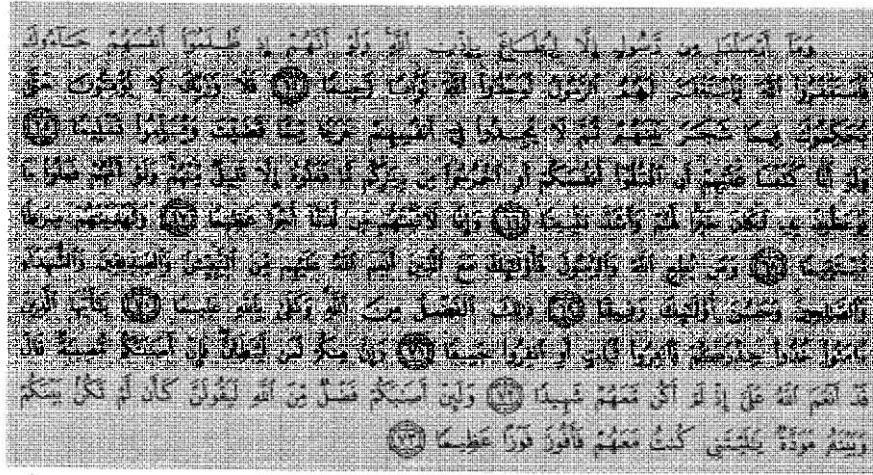 وَمَآ أَرْسَلْنَا مِن رَّسُولٍ إِلَّا لِيُطَاعَ بِإِذْنِ ٱللَّهِ وَلَوْ أَنَّهُمْ إِذ ظَّلَمُوٓا۟ أَنفُسَهُمْ جَآءُوكَ
فَٱسْتَغْفَرُوا۟ ٱللَّهَ وَٱسْتَغْفَرَ لَهُمُ ٱلرَّسُولُ لَوَجَدُوا۟ ٱللَّهَ تَوَّابًا رَّحِيمًا ﴿٦٤﴾ فَلَا وَرَبِّكَ لَا يُؤْمِنُونَ حَتَّىٰ
يُحَكِّمُوكَ فِيمَا شَجَرَ بَيْنَهُمْ ثُمَّ لَا يَجِدُوا۟ فِىٓ أَنفُسِهِمْ حَرَجًا مِّمَّا قَضَيْتَ وَيُسَلِّمُوا۟ تَسْلِيمًا ﴿٦٥﴾
وَلَوْ أَنَّا كَتَبْنَا عَلَيْهِمْ أَنِ ٱقْتُلُوٓا۟ أَنفُسَكُمْ أَوِ ٱخْرُجُوا۟ مِن دِيَٰرِكُم مَّا فَعَلُوهُ إِلَّا قَلِيلٌ مِّنْهُمْ وَلَوْ أَنَّهُمْ فَعَلُوا۟ مَا
يُوعَظُونَ بِهِۦ لَكَانَ خَيْرًا لَّهُمْ وَأَشَدَّ تَثْبِيتًا ﴿٦٦﴾ وَإِذًا لَّءَاتَيْنَٰهُم مِّن لَّدُنَّآ أَجْرًا عَظِيمًا ﴿٦٧﴾ وَلَهَدَيْنَٰهُمْ صِرَٰطًا
مُّسْتَقِيمًا ﴿٦٨﴾ وَمَن يُطِعِ ٱللَّهَ وَٱلرَّسُولَ فَأُو۟لَٰٓئِكَ مَعَ ٱلَّذِينَ أَنْعَمَ ٱللَّهُ عَلَيْهِم مِّنَ ٱلنَّبِيِّـۧنَ وَٱلصِّدِّيقِينَ وَٱلشُّهَدَآءِ
وَٱلصَّٰلِحِينَ وَحَسُنَ أُو۟لَٰٓئِكَ رَفِيقًا ﴿٦٩﴾ ذَٰلِكَ ٱلْفَضْلُ مِنَ ٱللَّهِ وَكَفَىٰ بِٱللَّهِ عَلِيمًا ﴿٧٠﴾ يَٰٓأَيُّهَا ٱلَّذِينَ
ءَامَنُوا۟ خُذُوا۟ حِذْرَكُمْ فَٱنفِرُوا۟ ثُبَاتٍ أَوِ ٱنفِرُوا۟ جَمِيعًا ﴿٧١﴾ وَإِنَّ مِنكُمْ لَمَن لَّيُبَطِّئَنَّ فَإِنْ أَصَٰبَتْكُم مُّصِيبَةٌ قَالَ
قَدْ أَنْعَمَ ٱللَّهُ عَلَىَّ إِذْ لَمْ أَكُن مَّعَهُمْ شَهِيدًا ﴿٧٢﴾ وَلَئِنْ أَصَٰبَكُمْ فَضْلٌ مِّنَ ٱللَّهِ لَيَقُولَنَّ كَأَن لَّمْ تَكُنۢ بَيْنَكُمْ
وَبَيْنَهُۥ مَوَدَّةٌ يَٰلَيْتَنِى كُنتُ مَعَهُمْ فَأَفُوزَ فَوْزًا عَظِيمًا ﴿٧٣﴾